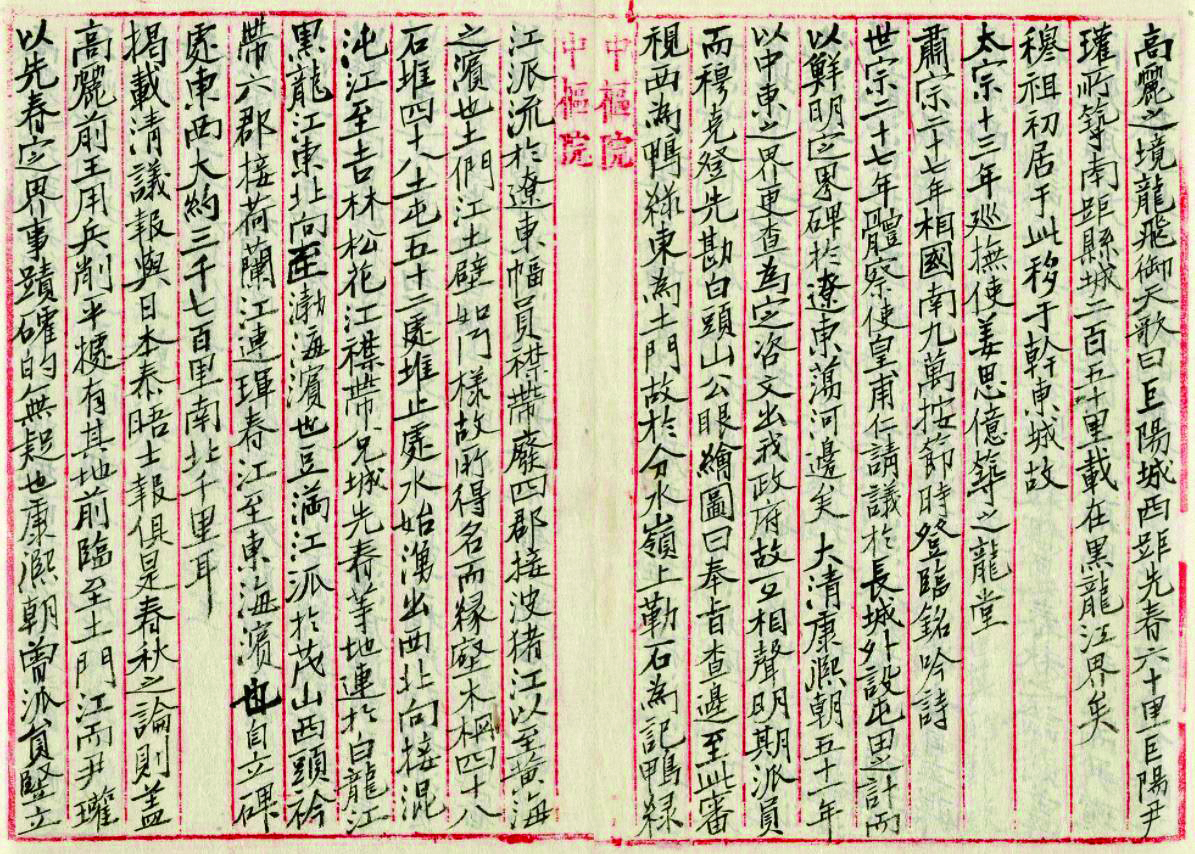 高麗之境龍飛御天歌曰巨陽城西距先春六十里巨陽尹
瓘所築南距縣城二百五十里載在黑龍江界矣
穆祖初居于此移于幹東城故
太宗十三年巡撫使姜思億築之龍堂
肅宗二十七年相國南九萬按節時登臨銘吟詩
世宗二十七年體察使皇甫仁請議於長城外設屯田之計而
以鮮明定界碑於遼東蕩河邊矣 大清康熙朝五十一年
以中東之界更查為定之咨文出我政府故互相聲明期派員
而穆克登先勘白頭山公眼繪圖曰奉旨查邊至此審
視西為鴨綠東為土門故於分水嶺上勒石為記鴨綠
中樞院
中樞院
江派流於遼東幅員襟帶廢四郡接波猪江以至黃海
之濱也土們江土壁如門樣故所得名而緣壑木柵四十八
石堆四十八土屯五十二處堆止處水始湧出西北向接混
沌江至吉林松花江襟帶兄城先春等地連於白龍江
黑龍江東北向至渤海濱也豆滿江派於茂山西頭衿
帶六郡接荷蘭江連琿春江至東海濱也自立碑
處東西大約三千七百里南北千里耳
揭載清議報與日本泰晤士報俱是春秋之論則盖
高麗前王用兵削平據有其地前臨至土門江而尹瓘
以先春定界事蹟確的無疑也康熙朝曾派員竪立